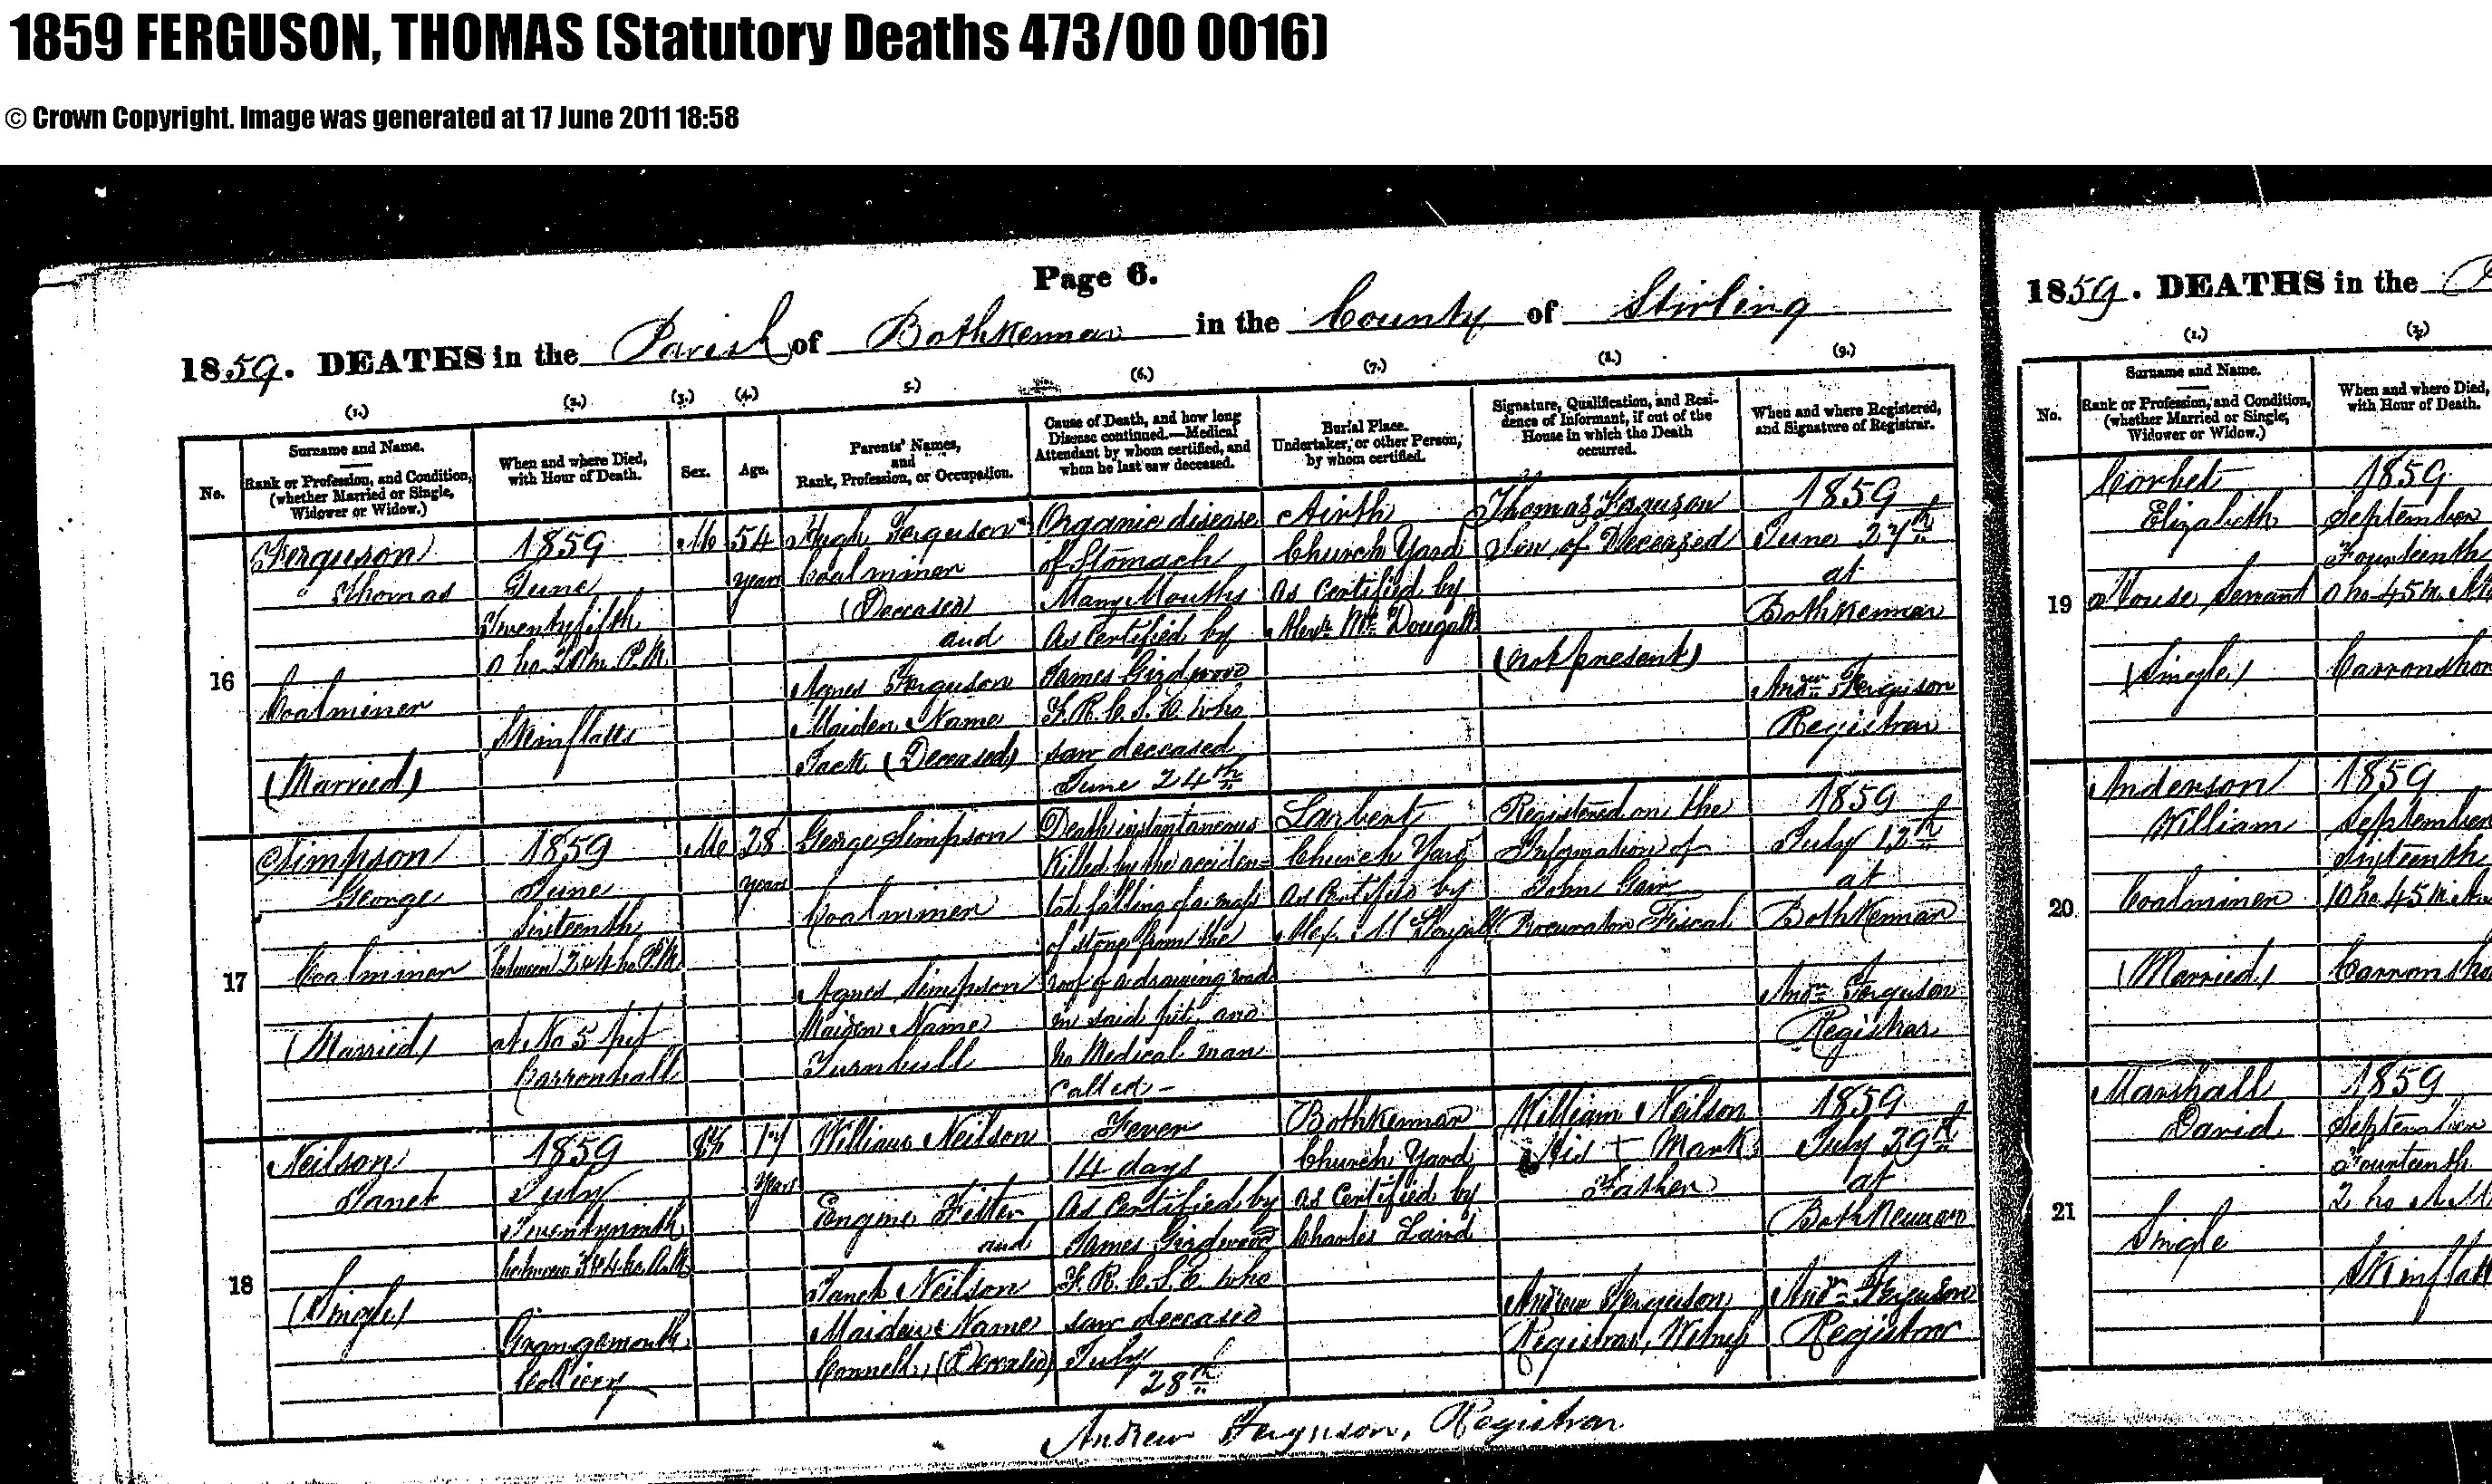 1859 FERGUSON, THOMAS (Statutory Deaths 473/00 0016)
© Crown Copyright. Image was generated at 17 June 2011 18:58
Page 6.
1859. DEATHS in the Parish of Bothkennar in the County of Stirling
(1.)
(2.)
(3.)
(4.)
5.)
(6.)
(7.)
(8.)
(9.)
No.
Surname and Name.
Rank or Profession, and Condition,
(whether Married or Single,
Widower or Widow.)
When and where Died,
with Hour of Death.
Sex.
Age.
Parents' Names,
and
Rank, Profession, or Occupation.
Cause of Death, and how long
Disease continued.—Medical
Attendant by whom certified, and
when he last saw deceased.
Burial Place.
Undertaker, or other Person,
by whom certified.
Signature, Qualification, and Resi-
dence of Informant, if out of the
House in which the Death
occurred.
When and where Registered,
and Signature of Registrar.
16
Ferguson
Thomas
Coalminer
(Married)
1859
June
Twentyfifth
0 ho. 20 m. P.M.
Skinflatts
M
54
years
Hugh Ferguson
Coalminer
(Deceased)
and
Agnes Ferguson
Maiden Name
Jack (Deceased)
Organic disease
of Stomach
Many Months
As certified by
James Girdwood
F.R.C.S.E. who
saw deceased
June 24th
Airth
Church Yard
as Certified by
Alexr. McDougall
Thomas Ferguson
Son of Deceased
(not present)
1859
June 27th
at
Bothkennar
Andw. Ferguson
Registrar
17
Simpson
George
Coalminer
(Married)
1859
June
Sixteenth
between 3 & 4 ho. P.M.
at No 5 pit
Carronhall
M
28
years
George Simpson
Coalminer
Agnes Simpson
Maiden Name
Turnbull
Death instantaneous
Killed by the acciden=
tal falling of a mass
of stone from the
roof of a drawing road
in said pit and
no Medical man
called -
Larbert
Church Yard
as Certified by
Alex. McDougall
Registered on the
Information of
John Gair
Procurator Fiscal
1859
July 12th
at
Bothkennar
Andw. Ferguson
Registrar
18
Neilson
Janet
(Single)
1859
July
Twentyninth
between 3 & 4 ho. A.M.
Grangemouth
Colliery
17
years
William Neilson
Engine Fitter
and
Janet Neilson
Maiden Name
Connell, (Deceased)
Fever
14 days
As certified by
James Girdwood
F.R.C.S.E. who
saw deceased
July
28th
Bothkennar
Church Yard
as certified by
Charles Laird
William Neilson
His + Mark
Father
Andrew Ferguson,
Registrar, Witness
1859
July 29th
at
Bothkennar
Andw. Ferguson
Registrar
Andrew Ferguson, Registrar
1859. DEATHS in the
(1.)
(2.)
No.
Surname and Name.
Rank or Profession, and Condition,
(whether Married or Single,
Widower or Widow.)
When and where Died,
with Hour of Death.
19
Corbet
Elizabeth
House Servant
(Single)
1859
September
Fourteenth
0 ho. 45 m.
Carronshor
20
Anderson
William
Coalminer
(Married)
1859
September
Sixteenth
10 ho. 45 m.
Carronsho
21
Marshall
David
Single
1859
September
Fourteenth
2 ho. A.M.
Skinflatt